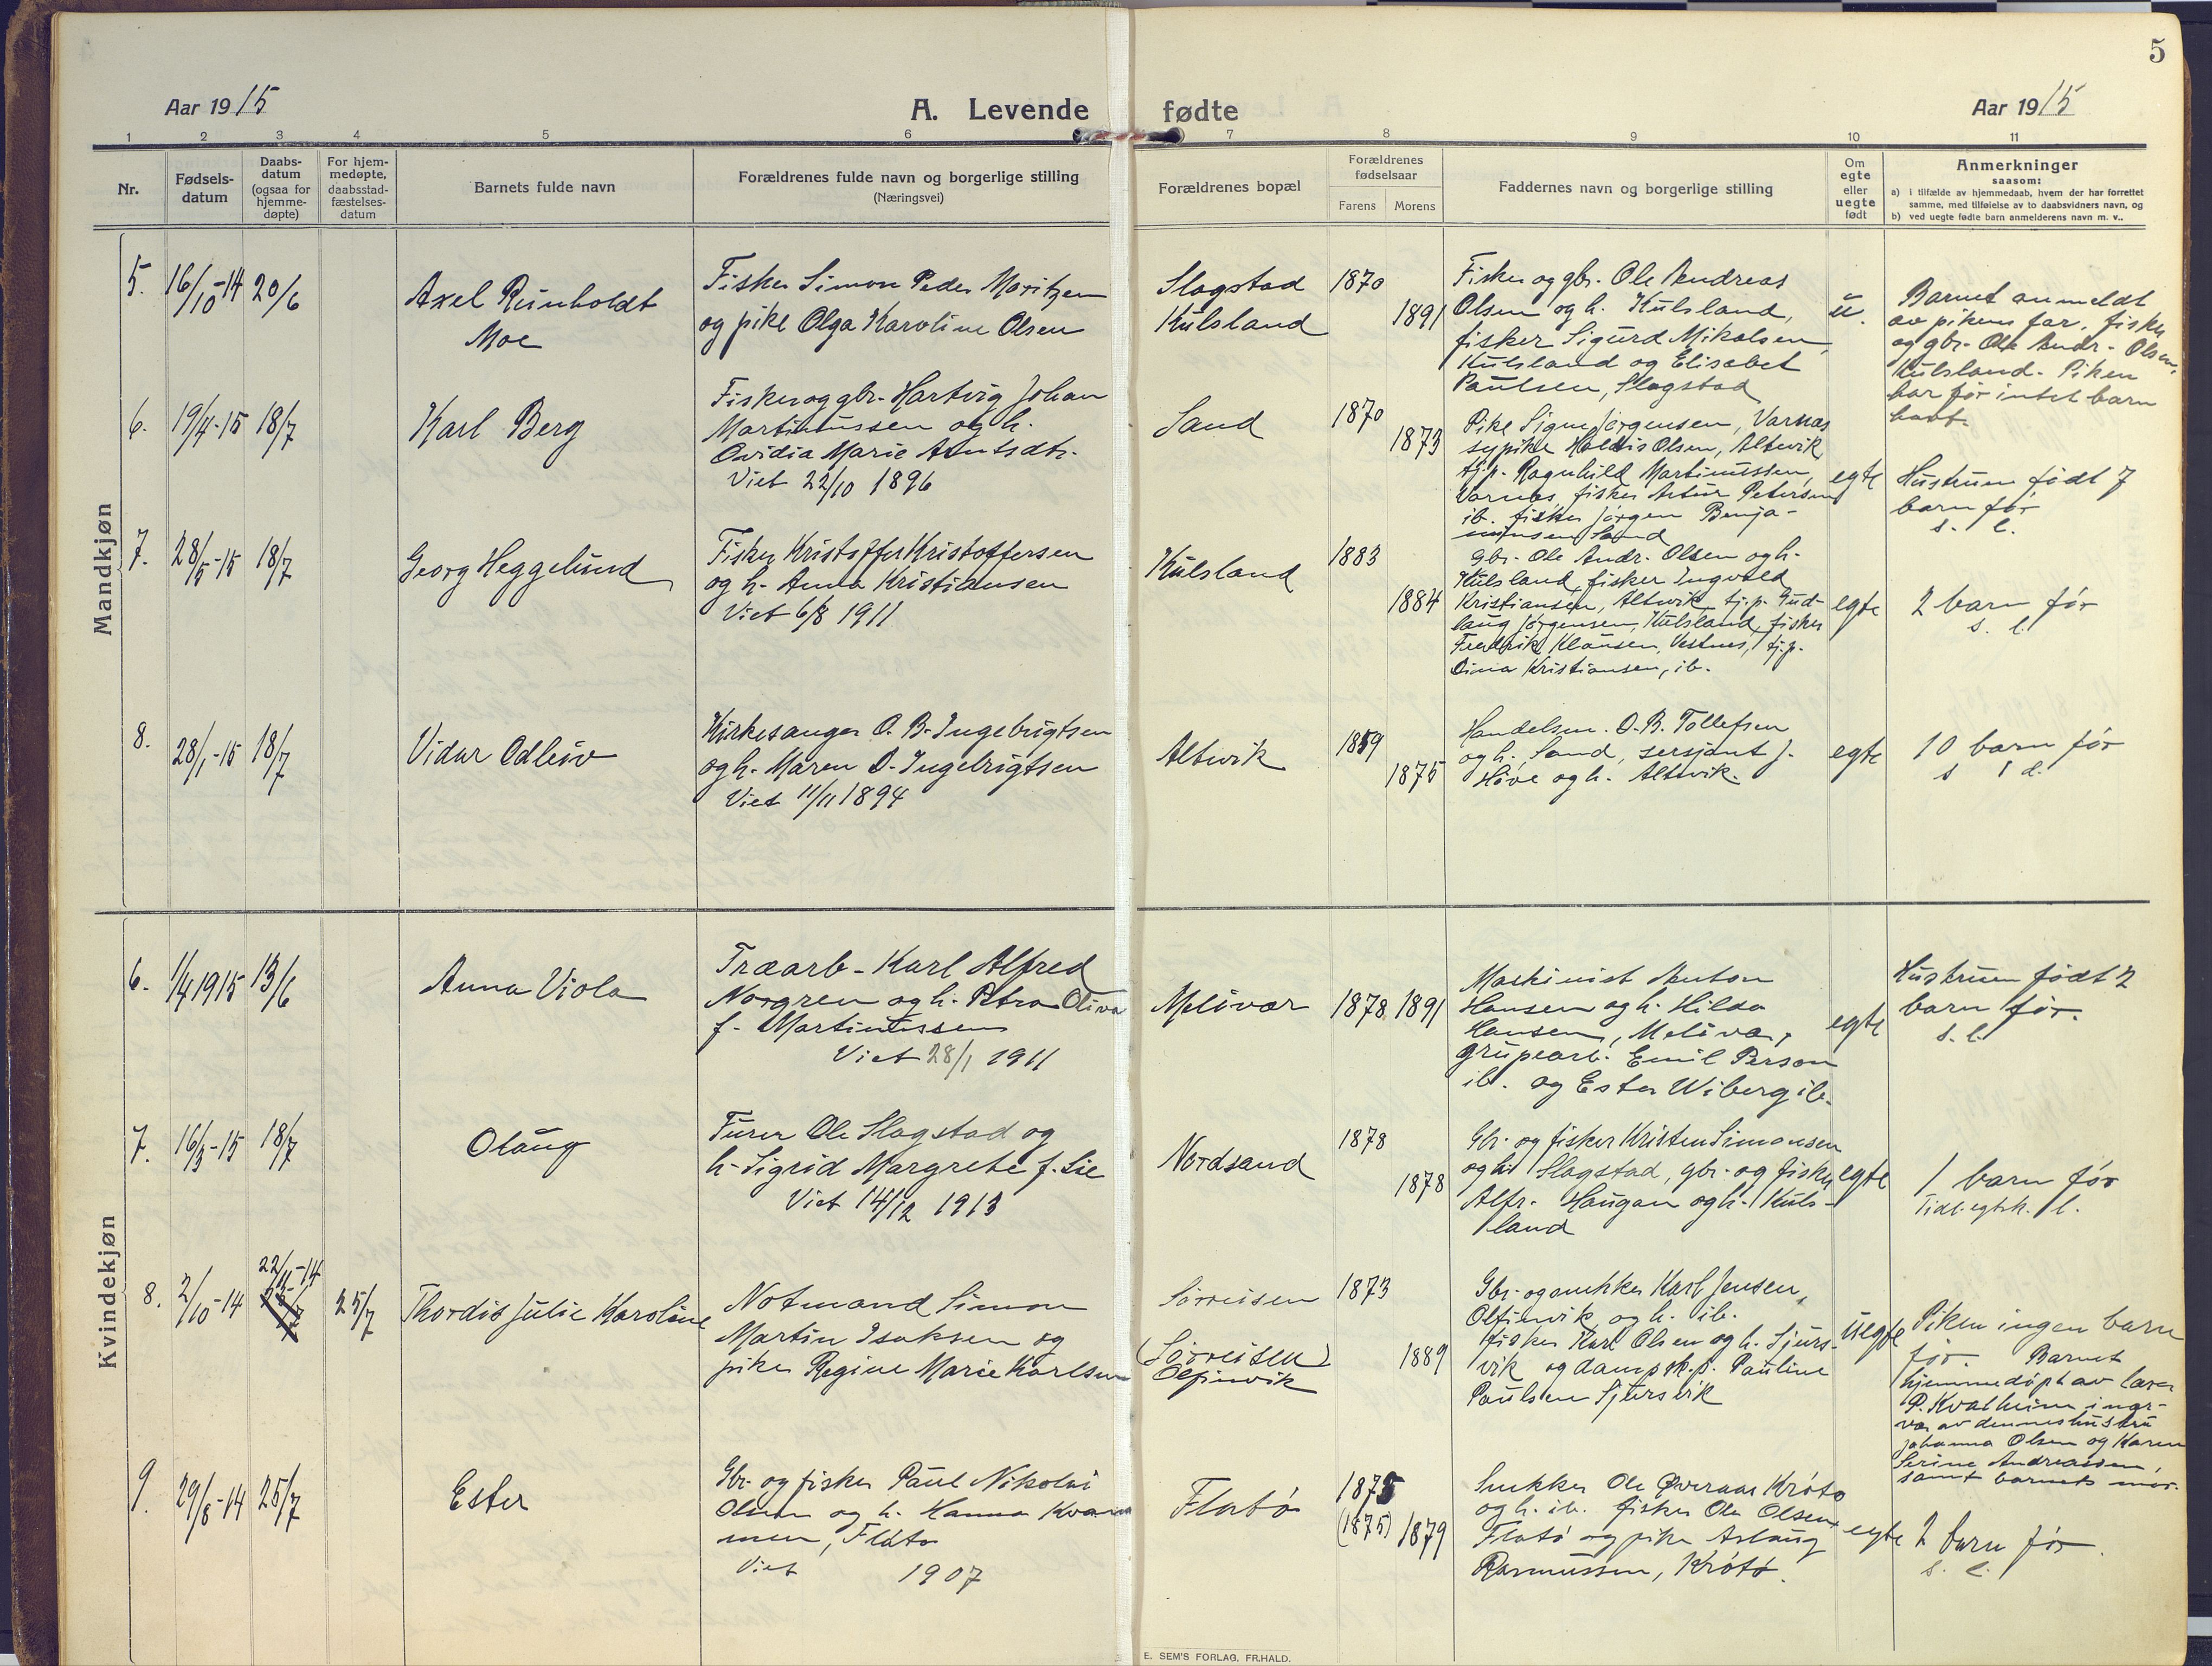 5
Aar 1915
A. Levende fødte
Aar 1915
1 2 3 4 5 6 7 8 9 10 11
Nr.
Fødsels-
datum
Daabs-
datum
(ogsaa for
hjemme-
døpte)
For hjem-
medøpte,
daabsstad-
fæstelses-
datum
Barnets fulde navn
Forældrenes fulde navn og borgerlige stilling
(Næringsvei)
Forældrenes bopæl
Forældrenes
fødselsaar
Farens Morens
Faddernes navn og borgerlige stilling
Om
egte
eller
uegte
født
Anmerkninger
saasom:
a) i tilfælde av hjemmedaab, hvem der har forrettet
samme, med tilføielse av to daabsvidners navn, og
b) ved uegte fødte barn anmelderens navn m. v..
Mandkjøn
5. 16/10-14 20/6
Axel Reinholdt
Moe
Fisker Simon Peder Moritzen
og pike Olga Karoline Olsen
Slagstad
Kulsland
1870
1891
Fisker og gbr. Ole Andreas
Olsen og h. Kulsland,
fisker Sigurd Mikalsen,
Kulsland og Elisabet
Paulsen, Slagstad
u.
Barnet anmeldt
av pikens far, fisker
og gbr. Ole Andr. Olsen,
Kulsland. Piken
har før intet barn
havt.
6. 19/4-15 18/7
Karl Berg
Fisker og gbr. Hartvig Johan
Martinussen og h.
Ovidia Marie Arntsdtr.
Viet 22/10 1896
Sand
1870
1873
Pike Signe Jørgensen, Varnes
sypike Holdis Olsen, Altevik,
tj.p. Ragnhild Martinussen,
Varnes, fisker Artur Petersen
ib. fisker Jørgen Benja-
minsen Sand
egte
Hustruen født 7
barn før
s. l.
7. 28/5-15 18/7
Georg Heggelund
Fisker Kristoffer Kristoffersen
og h. Anna Kristiansen
Viet 6/8 1911
Kulsland
1883
1884
gbr. Ole Andr. Olsen og h.
Kulsland, fisker Ingvald
Kristiansen, Altevik, tj.p. Gud-
laug Jørgensen, Kulsland, fisker
Fredrik Klausen, Vestnes, tj.p.
Dina Kristiansen, ib.
egte
2 barn før
s. l.
8. 28/1-15 18/7
Vidar Odleiv
Kirkesanger O. B. Ingebrigtsen
og h. Maren D. Ingebrigtsen
Viet 11/11 1894
Altevik
1859
1875
Handelsm. O. B. Tollefsen
og h., Sand, sersjant J.
Hove og h. Altevik.
egte
10 barn før
s 1 d.
Kvindekjøn
6. 1/4 1915 13/6
Anna Viola
Træarb. Karl Alfred
Norgren og h. Petra Oliva
f. Martinussen
Viet 28/1 1911
Melövær
1878 1891
Maskinist Anton
Hansen og h. Hilda
Hansen, Melövær,
grupearb. Emil Person
ib. og Ester Wiberg ib.
egte
Hustruen født 2
barn før.
s. l.
7. 16/3-15 18/7
Olaug
Furer Ole Slagstad og
h. Sigrid Margrete f. Lie
Viet 14/12 1913
Nordsand
1878
1878
Gbr. og fisker Kristen Simonsen
og h. Slagstad, gbr. og fisker
Alfr. Haugan og h. Kuls-
land
egte
1 barn før
Tidl. egtsk. l.
8. 2/10-14 22/11-14 25/7
Thordis Julie Karoline
Notmand Simon
Martin Isaksen og
pike Regine Marie Karlsen
Sørreisen
(Sørreisen)
Olfinvik
1873
1889
Gbr. og snekker Karl Jensen,
Olfinvik og h. ib.
fisker Karl Olsen og h. Sjurs-
vik og dampsk.p. Pauline
Paulsen Sjursvik
uegte
Piken ingen barn
før. Barnet
hjemmedøpt av lærer
P. Kvalheim i nær-
vær av dennes hustru
Johanna Olsen og Karen
Serine Andreassen,
samt barnets mor.
9. 29/8-14 25/7
Ester
Gbr. og fisker Paul Nikolai
Olsen og h. Hanna Kvam
men, Flatø
Viet 1907
Flatø
1875
(1875) 1879
Snekker Ole Øveraas Krøtø
og h. ib. fisker Ole Olsen
Flatø og pike Aslaug
Rasmussen, Krøtø.
egte
2 barn før.
s. l.
E. SEM'S FORLAG, FR.HALD.